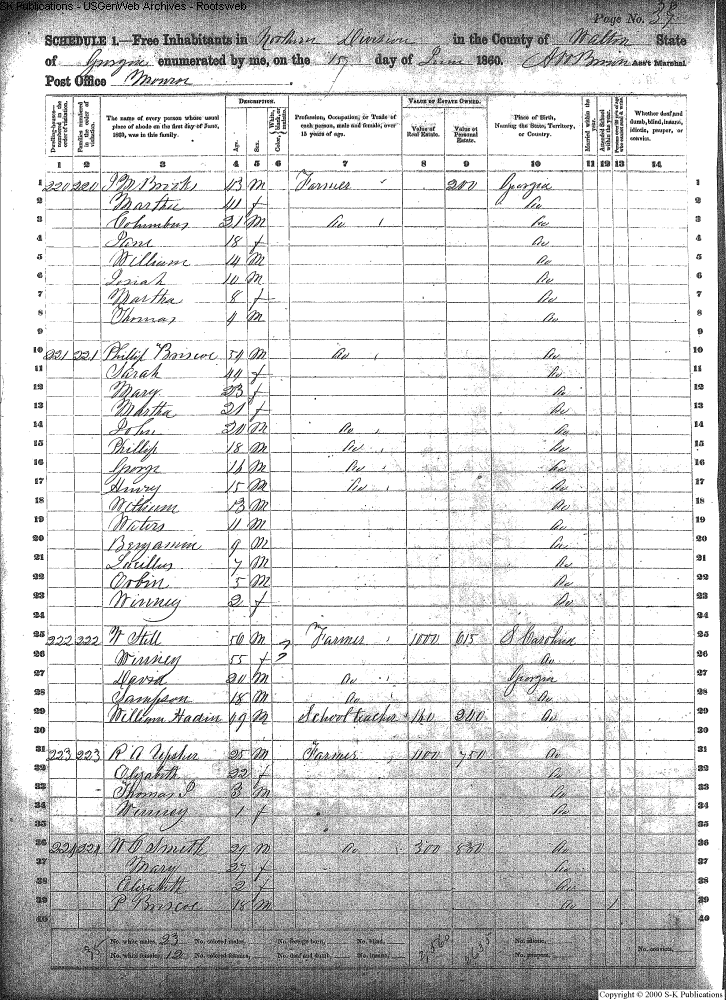 SK Publications - USGenWeb Archives - Rootsweb
Page No. 37
SCHEDULE 1.—Free Inhabitants in Northern Division in the County of Walton State
of Georgia enumerated by me, on the 15 day of June 1860. Ass't Marshal
Post Office Monroe
DESCRIPTION. VALUE OF ESTATE OWNED.
Dwelling-houses—numbered in the order of visitation. Families numbered in the order of visitation. The name of every person whose usual place of abode on the first day of June, 1860, was in this family. Age. Sex. Color, White, black, or mulatto. Profession, Occupation, or Trade of each person, male and female, over 15 years of age. Value of Real Estate. Value of Personal Estate. Place of Birth, Naming the State, Territory, or Country. Married within the year. Attended School within the year. Persons over 20 y'rs of age who cannot read & write. Whether deaf and dumb, blind, insane, idiotic, pauper, or convict.
1 2 3 4 5 6 7 8 9 10 11 12 13 14
1 220 220 43 M Farmer 200 Georgia 1
2 Martha 41 f Do 2
3 Columbus 21 M Do Do 3
4 Jane 18 f Do 4
5 William 14 M Do 5
6 Josiah 10 M Do 6
7 Martha 8 f Do 7
8 Thomas 4 M Do 8
9 9
10 221 221 Phillip Briscoe 54 M Do Do 10
11 Sarah 44 f Do 11
12 Mary 23 f Do 12
13 Martha 21 f Do 13
14 John 20 M Do Do 14
15 Phillip 18 M Do Do 15
16 George 16 M Do Do 16
17 Henry 15 M Do Do 17
18 William 13 M Do 18
19 Waters 11 M Do 19
20 Benjamin 9 M Do 20
21 Lucillus 7 M Do 21
22 Orbin 5 M Do 22
23 Winney 2 f Do 23
24 24
25 222 222 W Still 56 M Farmer 1000 615 S Carolina 25
26 Winney 55 f Do 26
27 David 20 M Do Georgia 27
28 Sampson 18 M Do Do 28
29 William Hadin 49 M School teacher 160 200 Do 29
30 30
31 223 223 R A Upsher 25 M Farmer 1100 750 Do 31
32 Elizabeth 22 f Do 32
33 Thomas P 3 M Do 33
34 Winney 1 f Do 34
35 35
36 224 224 W D Smith 29 M Do 300 830 Do 36
37 Mary 27 f Do 37
38 Elizabeth 2 f Do 38
39 P Briscoe 18 M Do 1 39
40 40
No. white males, 23 No. colored males, No. foreign born, No. blind, No. idiotic, No. convicts,
No. white females, 12 No. colored females, No. deaf and dumb, No. insane, No. paupers,
Copyright © 2000 S-K Publications